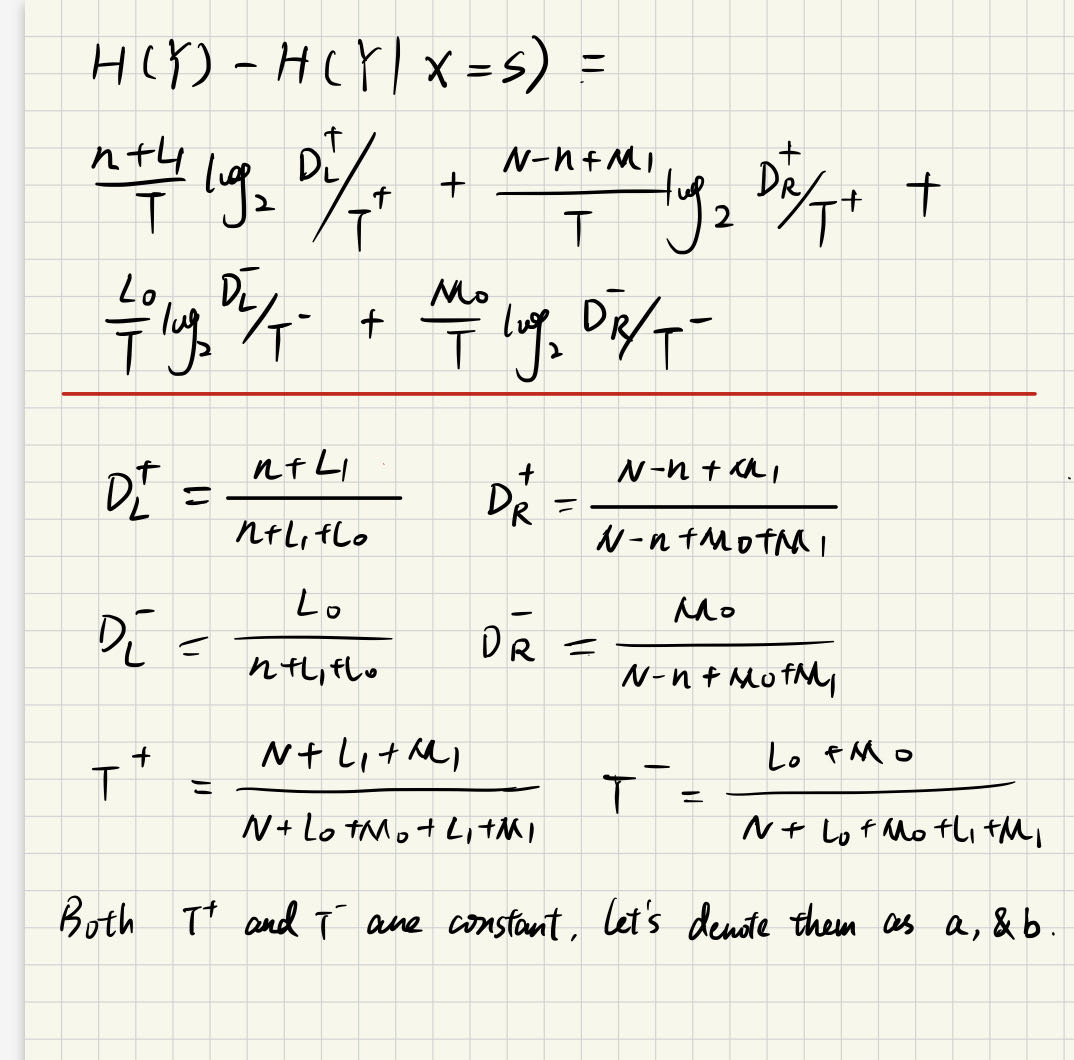 H(Y) - H(Y| X = S) =
n+L₁/T log₂ D_L⁺/T⁺ + N-n+M₁/T log₂ D_R⁺/T⁺ +
L₀/T log₂ D_L⁻/T⁻ + M₀/T log₂ D_R⁻/T⁻
D_L⁺ = n+L₁/n+L₁+L₀ D_R⁺ = N-n+M₁/N-n+M₀+M₁
D_L⁻ = L₀/n+L₁+L₀ D_R⁻ = M₀/N-n+M₀+M₁
T⁺ = N+L₁+M₁/N+L₀+M₀+L₁+M₁ T⁻ = L₀+M₀/N+L₀+M₀+L₁+M₁
Both T⁺ and T⁻ are constant, let's denote them as a, & b.